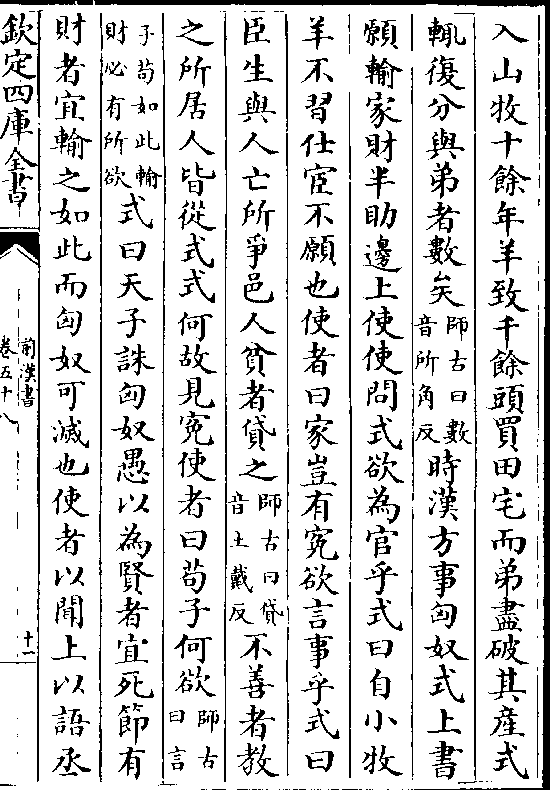 入山牧十餘年羊致千餘頭買田宅而弟盡破其産式
輒復分與弟者數矣師古曰數音所角反時漢方事匈奴式上書
願輸家財半助邊上使使問式欲為官乎式曰自小牧
羊不習仕宦不願也使者曰家豈有寃欲言事乎式曰
臣生與人亡所爭邑人貧者貸之師古曰貸音土戴反不善者教
之所居人皆從式式何故見寃使者曰苟子何欲師古曰言
子苟如此輸財必有所欲式曰天子誅匈奴愚以為賢者宜死節有
財者宜輸之如此而匈奴可滅也使者以聞上以語丞
欽定四庫全書
前漢書
卷五十八
十一